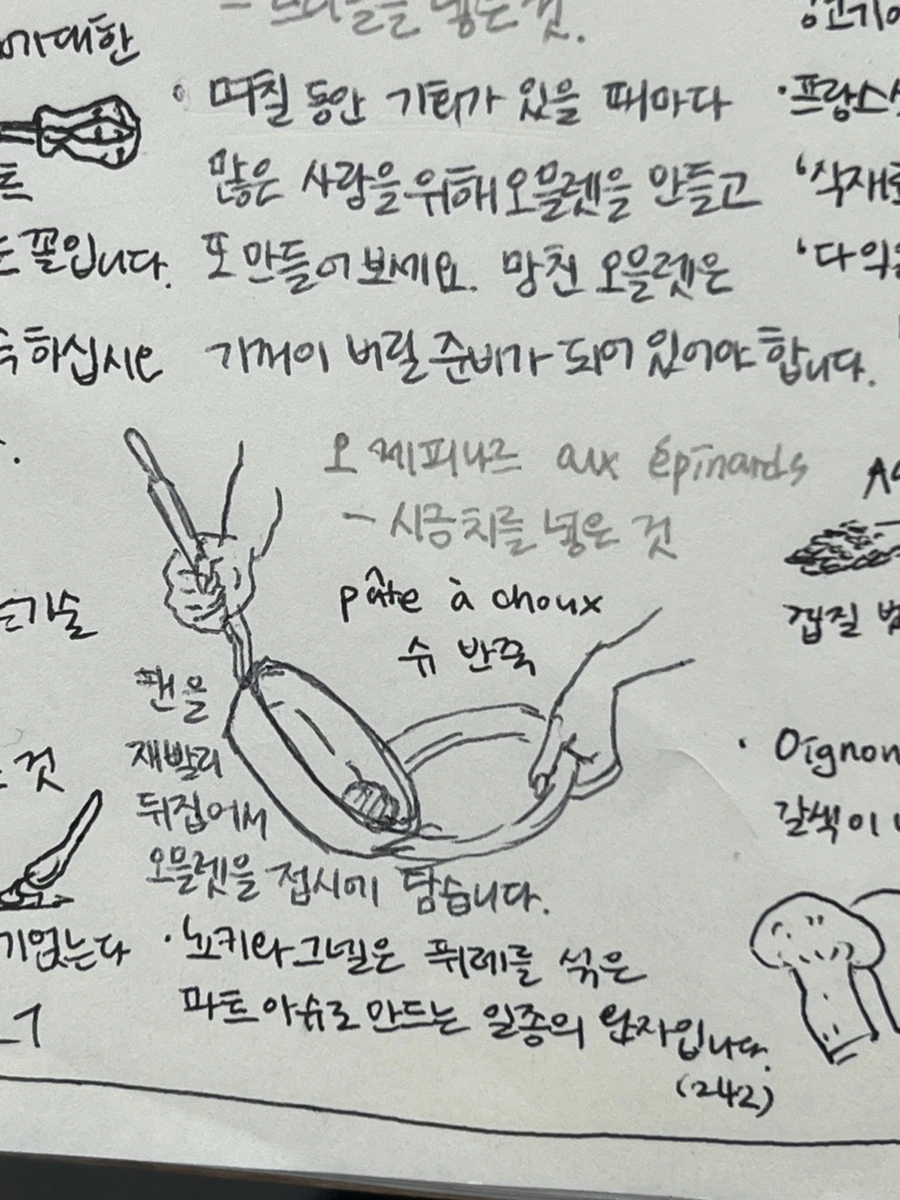 에 대한
트
꼴입니다.
하십시오
기술
것
기없는다
넣은 것.
• 며칠 동안 기회가 있을 때마다
많은 사람을 위해 오믈렛을 만들고
또 만들어 보세요. 망친 오믈렛은
기꺼이 버릴 준비가 되어 있어야 합니다.
오 제피나르 aux épinards
- 시금치를 넣은 것
pâte à choux
슈 반죽
팬을
재빨리
뒤집어서
오믈렛을 접시에 담습니다.
• 뇨키와 그넬은 퓌레를 섞은
파트 아 슈로 만드는 일종의 완자입니다.
(242)
• 프랑스
'식재료
'다익
껍질
• Oignon
갈색이